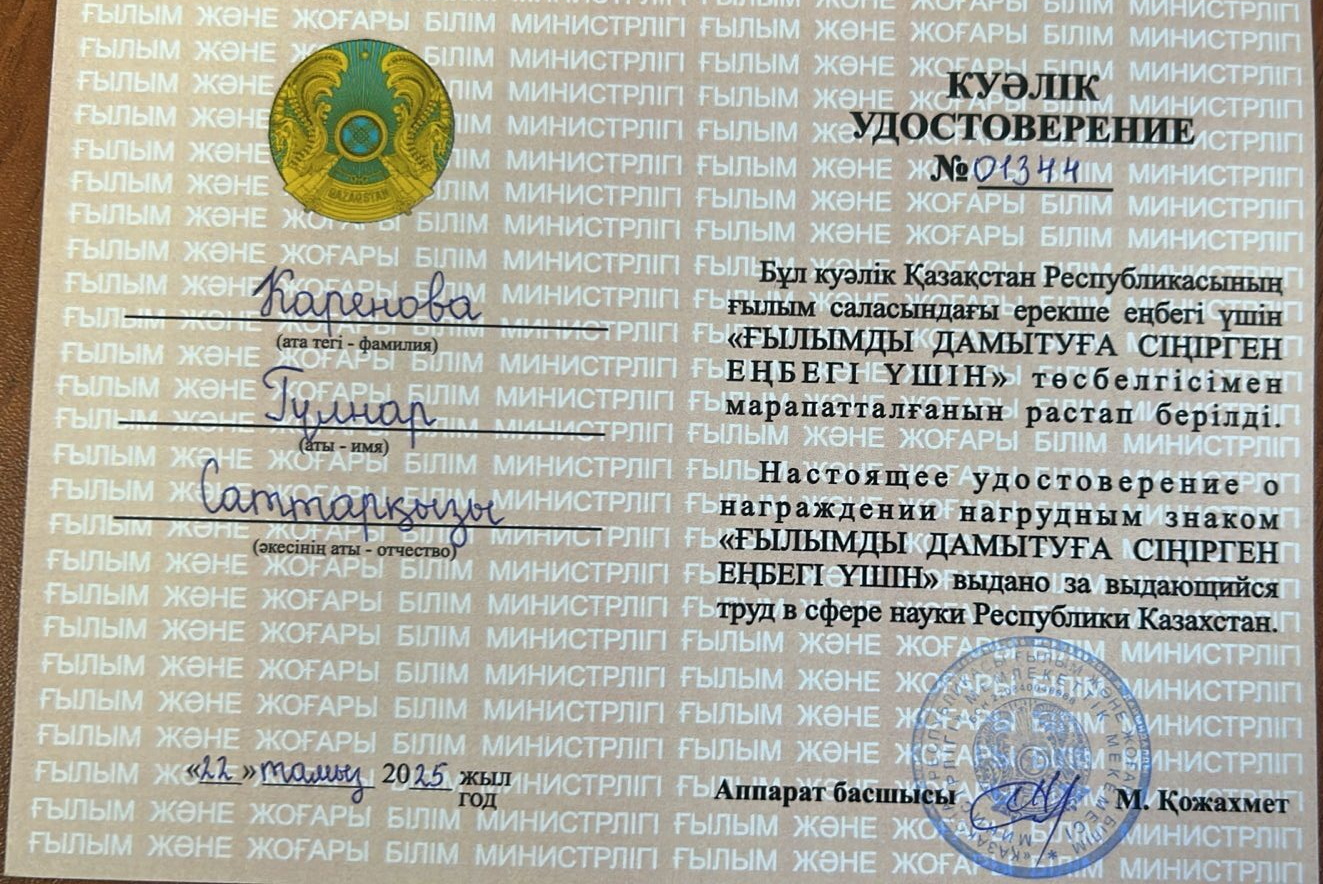 QAZAQSTAN
Каренова
(ата тегі - фамилия)
Гүлнар
(аты - имя)
Саттарқызы
(әкесінің аты - отчество)
«22» тамыз 2025 жыл
год
КУӘЛІК
УДОСТОВЕРЕНИЕ
№ 01344
Бұл куәлік Қазақстан Республикасының
ғылым саласындағы ерекше еңбегі үшін
«ҒЫЛЫМДЫ ДАМЫТУҒА СІҢІРГЕН
ЕҢБЕГІ ҮШІН» төсбелгісімен
марапатталғанын растап берілді.
Настоящее удостоверение о
награждении нагрудным знаком
«ҒЫЛЫМДЫ ДАМЫТУҒА СІҢІРГЕН
ЕҢБЕГІ ҮШІН» выдано за выдающийся
труд в сфере науки Республики Казахстан.
Аппарат басшысы М. Қожахмет
ҒЫЛЫМ ЖӘНЕ ЖОҒАРЫ БІЛІМ МИНИСТРЛІГІ